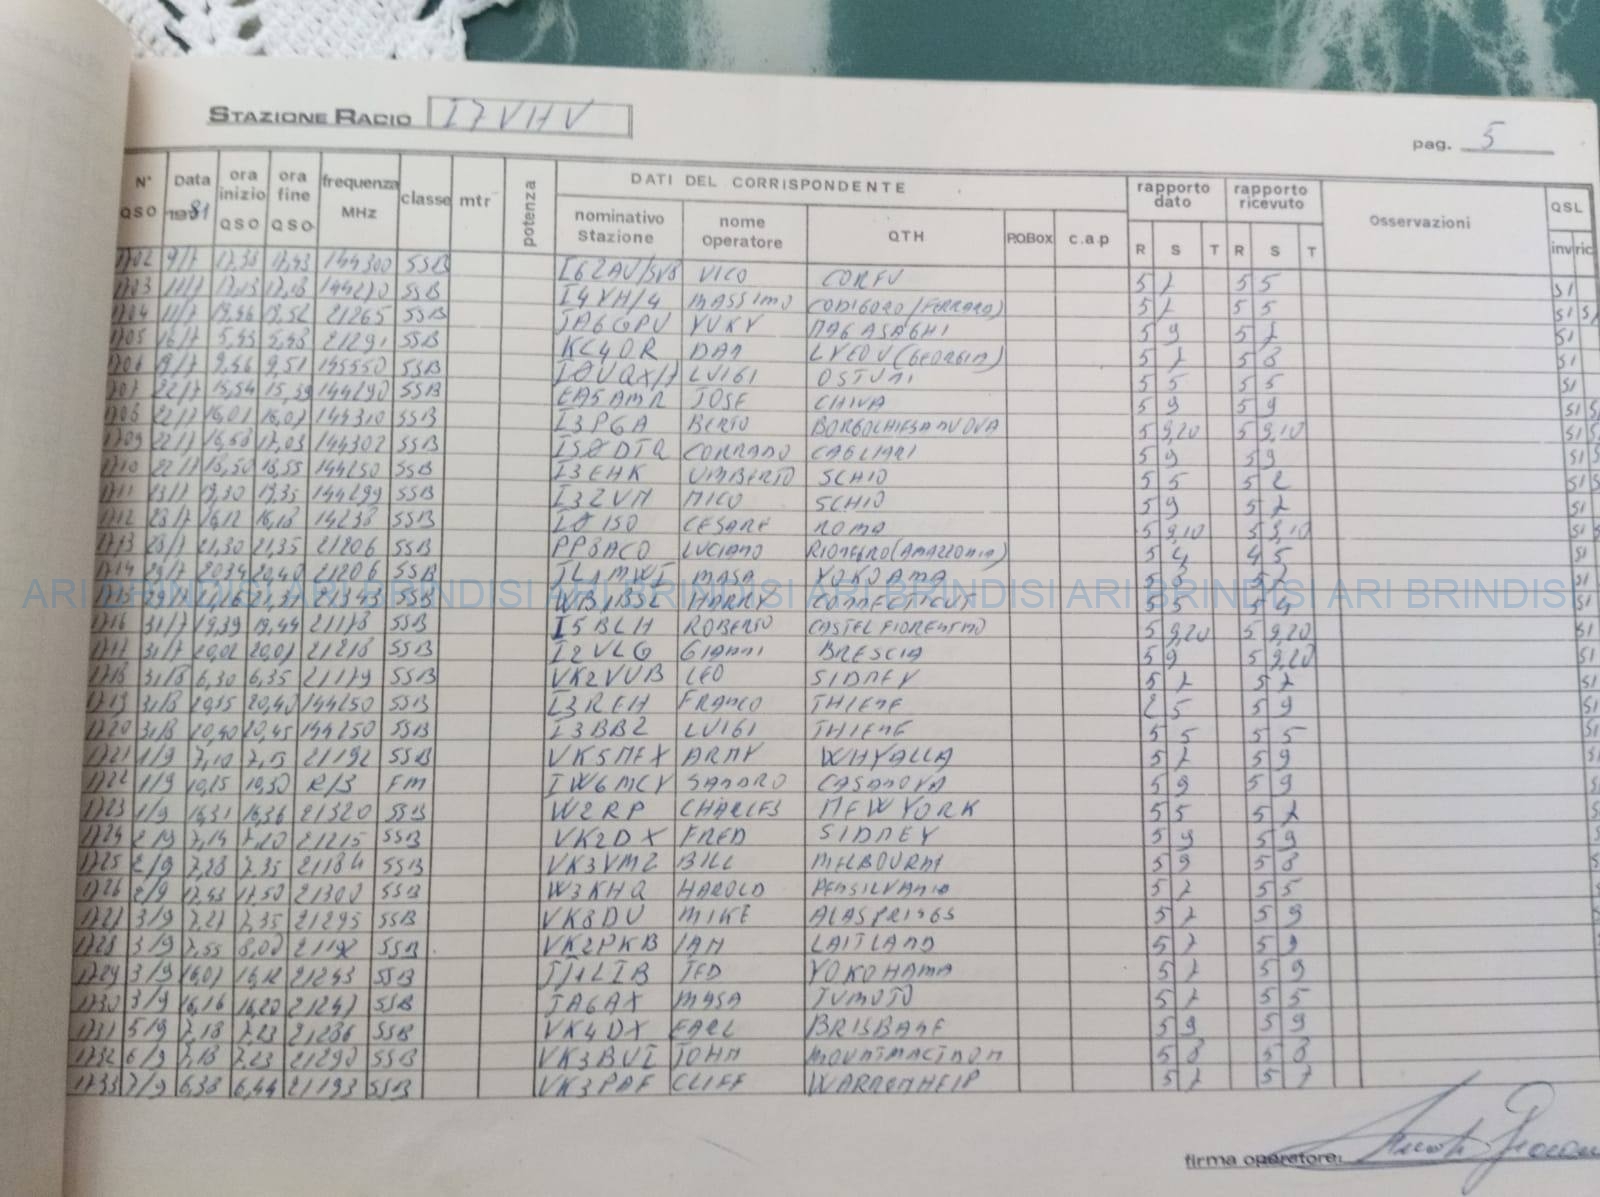 STAZIONE RADIO I7VHV
pag. 5
N° QSO Data 1981 ora inizio QSO ora fine QSO frequenza MHz classe mtr potenza DATI DEL CORRISPONDENTE rapporto dato rapporto ricevuto Osservazioni QSL
nominativo Stazione nome Operatore QTH P.O.Box c.a.p R S T R S T inv ric
1702 9/7 17,38 17,43 144300 SSB VICO CORFU 5 7 5 5
1703 11/7 144270 SSB I4YH/4 MASSIMO CODIGORO (FERRARA) 5 7 5 5 SI
1704 11/7 21265 SSB JA6GPU YUKY NAGASAGHI 5 9 5 7 SI
1705 16/7 21291 SSB KC4OR DAN (GEORGIA) 5 7 5 8 SI
1706 19/7 9,46 9,51 145550 SSB LUIGI OSTUNI 5 5 5 5 SI
1707 22/7 15,54 15,59 144290 SSB EA5AMR JOSE CHIVA 5 9 5 9 SI
1708 22/7 16,01 16,07 144310 SSB I3PGA BERTO BORGOCHIESANUOVA 5 9,20 5 9,10 SI
1709 22/7 16,58 17,03 144302 SSB IS0DTQ CORRADO CAGLIARI 5 9 5 9 SI
1710 22/7 18,50 18,55 144250 SSB I3EHK UMBERTO SCHIO 5 5 5 2 SI
1711 23/7 19,30 19,35 144299 SSB I3ZVN NICO SCHIO 5 9 5 7 SI
1712 28/7 16,12 16,18 14238 SSB I0ISO CESARE ROMA 5 9,10 5 9,10 SI
1713 28/7 21,30 21,35 21206 SSB PP8ACO LUCIANO RIONEGRO (AMAZZONIA) 5 4 4 5 SI
1714 29/7 20,34 20,40 21206 SSB JL1MWI MASA YOKOAMA SI
1715 21343 SSB WB1BSL HARRY CONNECTICUT SI
1716 31/7 19,39 19,44 21178 SSB I5BLH ROBERTO CASTELFIORENTINO 5 9,20 5 9,20 SI
1717 31/7 20,02 20,07 21218 SSB I2VLG GIANNI BRESCIA 5 9 5 9,20 SI
1718 31/8 6,30 6,35 21179 SSB VK2VUB LEO SIDNEY 5 7 5 7 SI
1719 31/8 20,35 20,40 144250 SSB I3REH FRANCO THIENE 2 5 5 9 SI
1720 31/8 20,40 20,45 144250 SSB I3BBZ LUIGI THIENE 5 5 5 5
1721 1/9 7,10 7,15 21192 SSB VK5MEX ARNY WHYALLA 5 7 5 9
1722 1/9 R/3 FM IW6MCY SANDRO CASANOVA 5 9 5 9
1723 1/9 16,31 16,36 21320 SSB W2RP CHARLES NEW YORK 5 5 5 7
1724 2/9 7,14 7,20 21215 SSB VK2DX FRED SIDNEY 5 9 5 9
1725 2/9 7,28 7,35 21184 SSB VK3VMZ BILL MELBOURN 5 9 5 8
1726 2/9 17,43 17,50 21300 SSB W3KHQ HAROLD PENSILVANIA 5 7 5 5
1727 3/9 7,27 7,35 21295 SSB VK8DU MIKE ALASPRINGS 5 7 5 9
1728 3/9 7,55 8,00 SSB VK2PKB IAN LAITLAND 5 7 5 9
1729 3/9 16,07 16,12 21243 SSB TED YOKOHAMA 5 7 5 9
1730 3/9 16,16 16,20 21247 SSB JA6AX MASA JUMOTO 5 7 5 5
1731 5/9 7,18 7,23 21286 SSB VK4DX EARL BRISBANE 5 9 5 9
1732 6/9 7,18 7,23 21290 SSB VK3BUI JOHN 5 8 5 8
1733 7/9 6,38 6,44 21193 SSB VK3PAF CLIFF WARRENHEIP 5 7 5 7
ARI BRINDISI ARI BRINDISI ARI BRINDISI ARI BRINDISI ARI BRINDISI ARI BRINDISI
firma operatore: